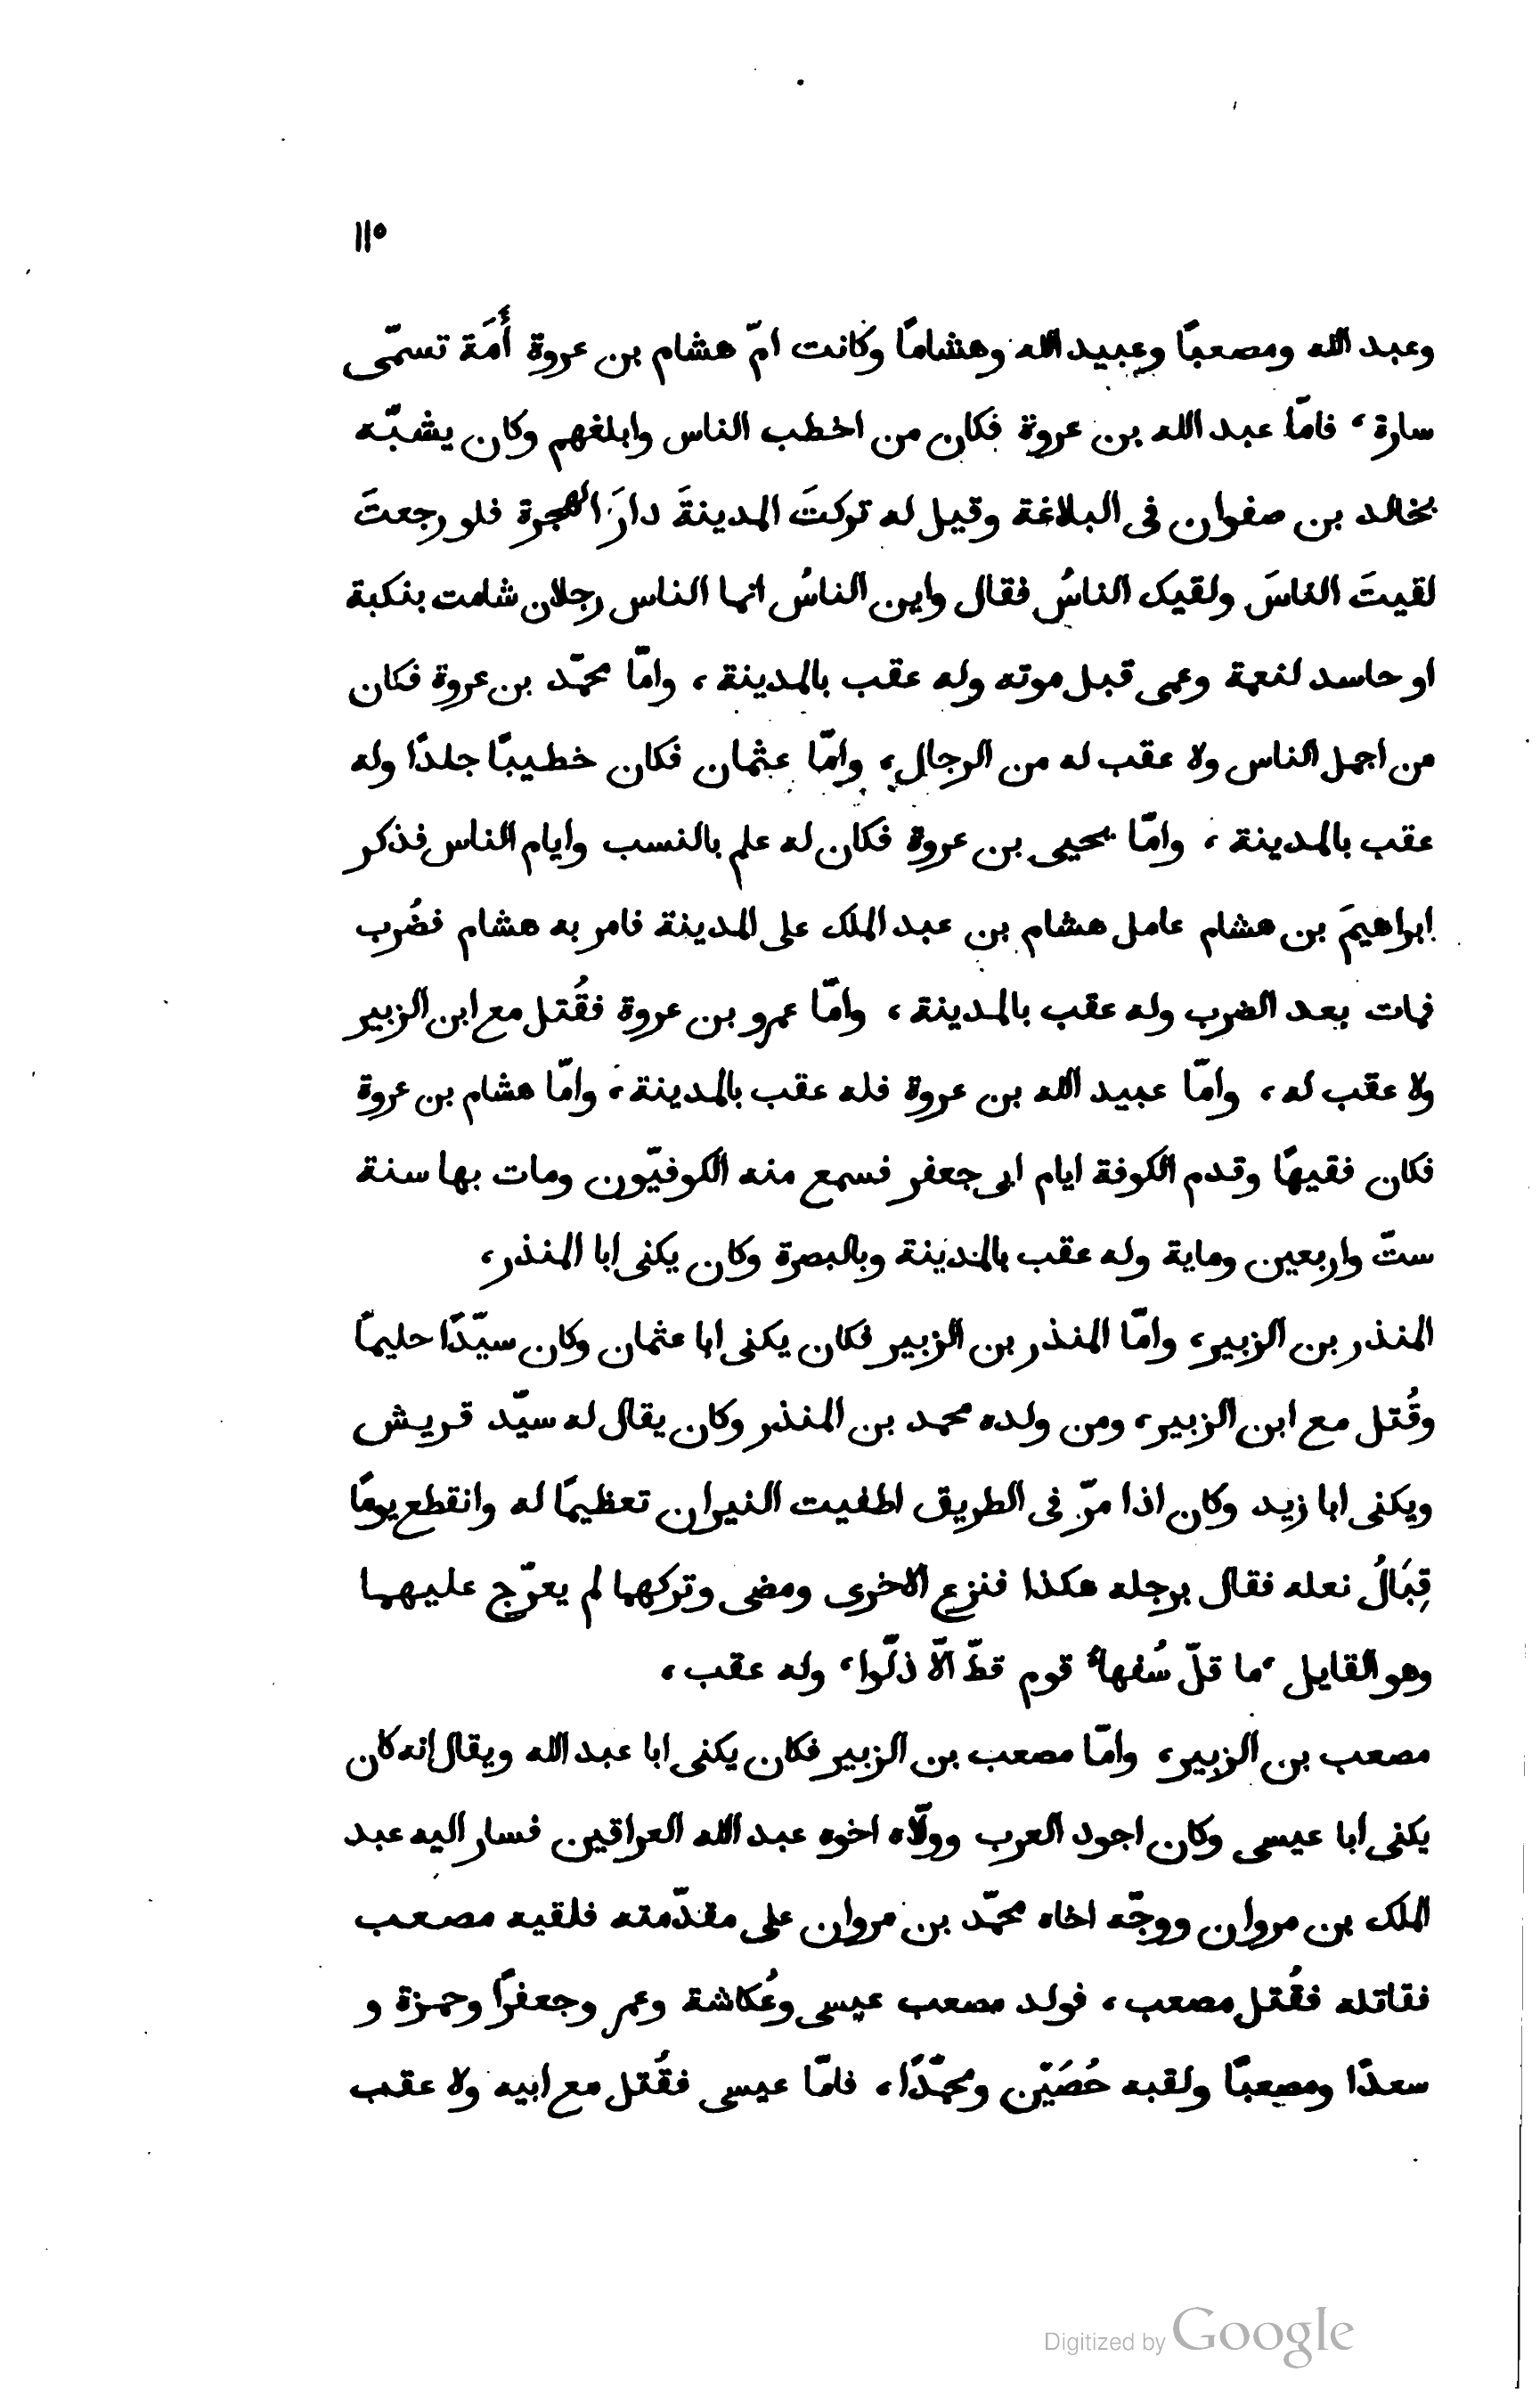 ١١٥
وعبد الله ومصعبًا وعبيد الله وهشامًا وكانت امّ هشام بن عروة أَمَة تسمّى
سارة، فامّا عبد الله بن عروة فكان من اخطب الناس وابلغهم وكان يشبّه
بخالد بن صفوان فى البلاغة وقيل له تركتَ المدينةَ دارَ الهجرة فلو رجعتَ
لقيتَ الناسَ ولقيك الناسُ فقال واين الناسُ انما الناس رجلان شامت بنكبة
او حاسد لنعمة وعمى قبل موته وله عقب بالمدينة، وامّا محمّد بن عروة فكان
من اجمل الناس ولا عقب له من الرجال، وامّا عثمان فكان خطيبًا جلدًا وله
عقب بالمدينة، وامّا يحيى بن عروة فكان له علم بالنسب وايام الناس فذكر
ابراهيمَ بن هشام عامل هشام بن عبد الملك على المدينة فامر به هشام فضُرب
فمات بعد الضرب وله عقب بالمدينة، وامّا عمرو بن عروة فقُتل مع ابن الزبير
ولا عقب له، وامّا عبيد الله بن عروة فله عقب بالمدينة، وامّا هشام بن عروة
فكان فقيهًا وقدم الكوفة ايام ابى جعفر فسمع منه الكوفيّون ومات بها سنة
ستّ واربعين وماية وله عقب بالمدينة وبالبصرة وكان يكنى ابا المنذر،
المنذر بن الزبير، وامّا المنذر بن الزبير فكان يكنى ابا عثمان وكان سيّدًا حليمًا
وقُتل مع ابن الزبير، ومن ولده محمد بن المنذر وكان يقال له سيّد قريش
ويكنى ابا زيد وكان اذا مرّ فى الطريق اطفيت النيران تعظيمًا له وانقطع يومًا
قِبَالُ نعله فقال برجله هكذا فنزع الاخرى ومضى وتركهما لم يعرّج عليهما
وهو القايل، ما قلّ سُفهاءُ قوم قطّ الّا ذلّوا، وله عقب،
مصعب بن الزبير، وامّا مصعب بن الزبير فكان يكنى ابا عبد الله ويقال انه كان
يكنى ابا عيسى وكان اجود العرب وولّاه اخوه عبد الله العراقين فسار اليه عبد
الملك بن مروان ووجّه اخاه محمّد بن مروان على مقدّمته فلقيه مصعب
فقاتله فقُتل مصعب، فولد مصعب عيسى وعُكاشة وعمر وجعفرًا وحمزة و
سعدًا ومصعبًا ولقبه حُصَيّن ومحمّدًا، فامّا عيسى فقُتل مع ابيه ولا عقب
Digitized by Google